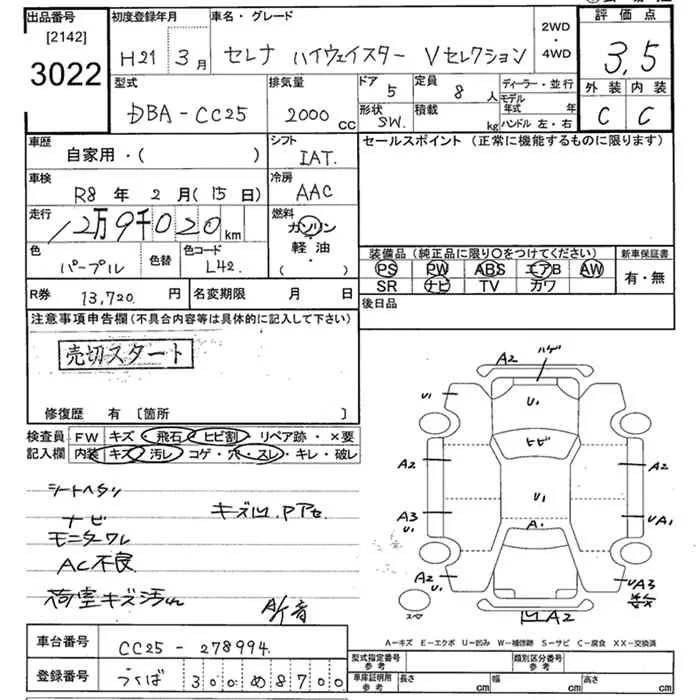 出品番号 初度登録年月 車名・グレード 2WD・4WD 評価点
[2142]
3022 H21 3月 セレナ ハイウェイスター Vセレクション 3.5
型式 排気量 ドア 5 定員 8人 ディーラー・並行 外装 内装
DBA-CC25 2000cc 形状 SW. 積載 kg モデル年式 年 C C
ハンドル 左・右
車歴 シフト セールスポイント (正常に機能するものに限ります)
自家用・( ) IAT.
車検 冷房
R8年 2月(15日) AAC
走行 燃料
12万9千020km ガソリン
色 色替 色コード 軽油
パープル L42. ・( )
装備品(純正品に限り○をつけてください) 新車保証書
PS PW ABS エアB AW 有・無
SR ナビ TV カワ
R券 13,720円 名変期限 月 日 後日品
注意事項申告欄(不具合内容等は具体的に記入して下さい)
売切スタート
修復歴 有 [箇所 ]
検査員 FW キズ・飛石・ヒビ割・リペア跡・×要
記入欄 内装 キズ・汚レ・コゲ・穴・スレ・キレ・破レ
シートヘタリ
ナビ キズ凹 Pアセ
モニタワレ
AC不良
荷室キズ汚れ
A2 ハゲ
U1 U1
ヒビ
A2 A2
A3 U1 U1 UA1
A1
A2 U1 UA3
スペ A2
A-キズ E-エクボ U-凹み W-補修跡 S-サビ C-腐食 XX-交換済
車台番号 CC25-278994
登録番号 つくば 300め8700
型式指定番号 参考 類別区分番号 参考
車庫証明用 参考 長さ cm 幅 cm 高さ cm